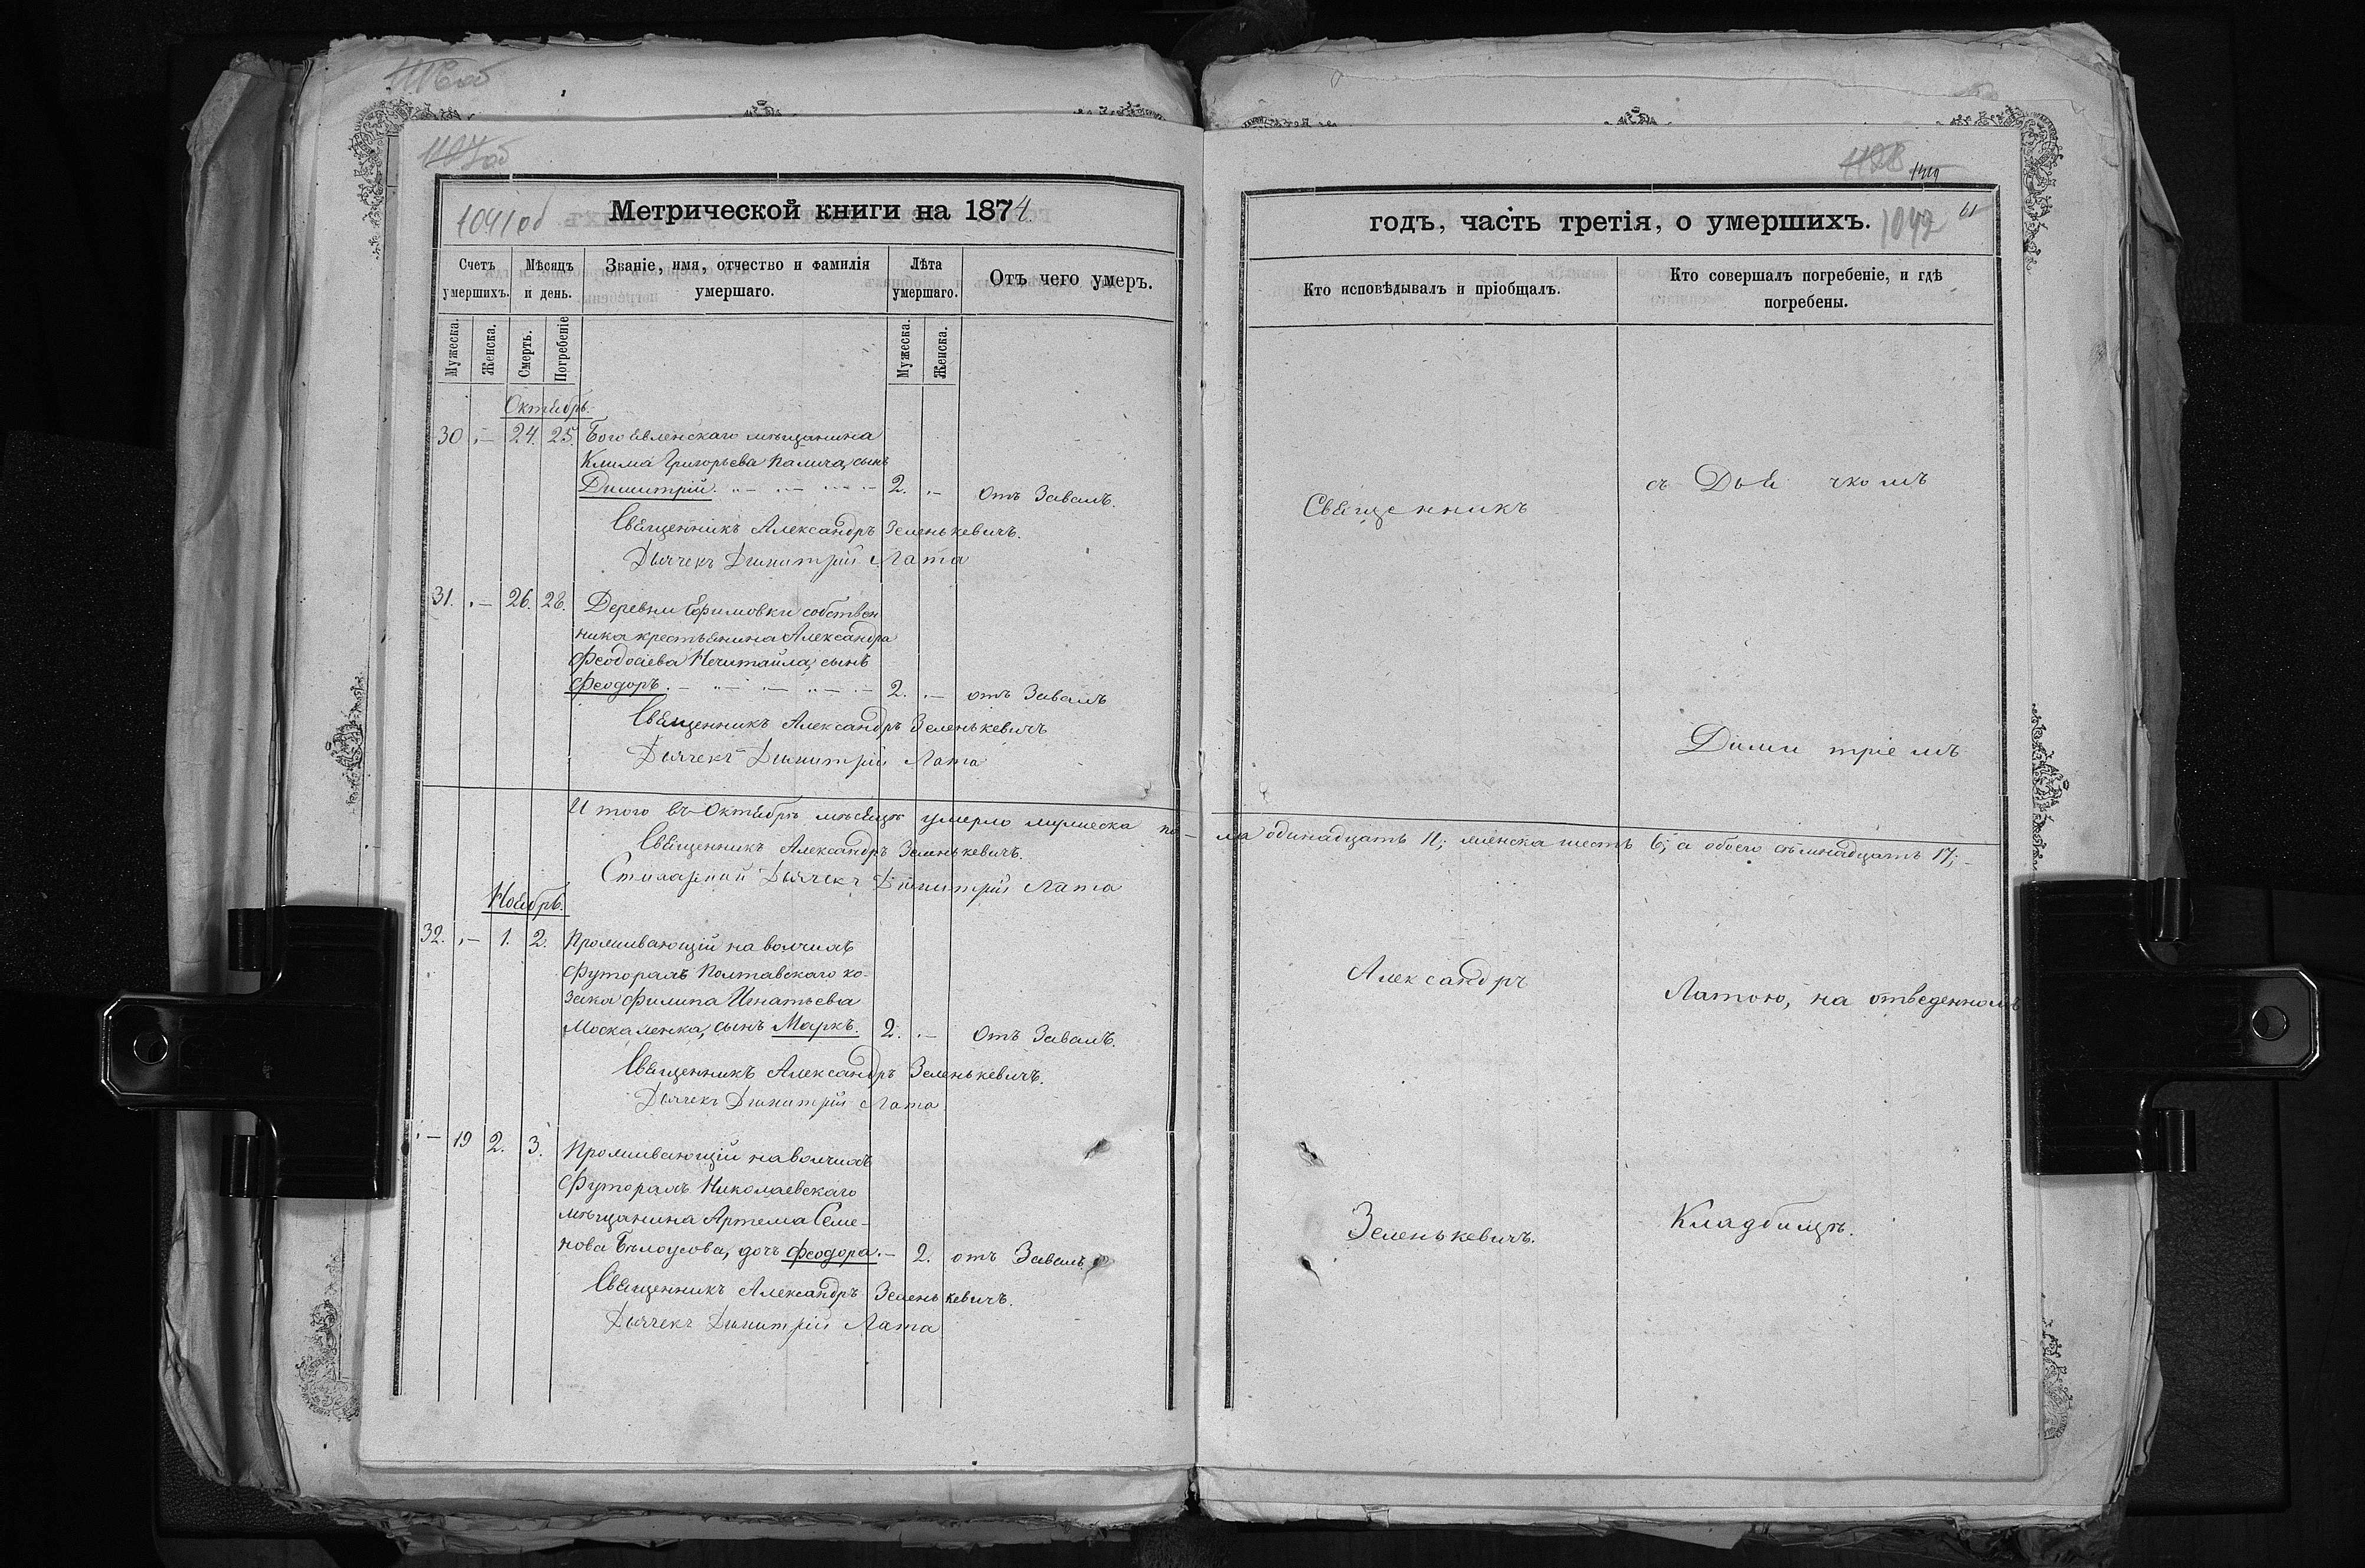 1041об
Метрической книги на 1874.
Счетъ умершихъ.
Мѣсяцъ и день.
Званіе, имя, отчество и фамилія умершаго.
Лѣта умершаго.
Отъ чего умеръ.
Мужеска.
Женска.
Смерть.
Погребеніе
Мужеска.
Женска.
Октябрь.
30 „— 24. 25. Богоявленскаго мѣщанина
Клима Григорьева Палича, сынъ
Димитрій. 2. „— Отъ Завалъ.
Священникъ Александръ Зеленькевичъ.
Дьячекъ Димитрій Лата
31. „— 26. 28. Деревни Ефимовки собствен
ника крестьянина Александра
Феодосіева Нечитайла, сынъ
Феодоръ. 2. „— отъ Завалъ
Священникъ Александръ Зеленькевичъ
Дьячекъ Димитрій Лата
Итого въ Октябрѣ мѣсяцѣ умерло мужеска по–
Священникъ Александръ Зеленькевичъ.
Стихарный Дьячекъ Димитрій Лата
Ноябрь.
32. „— 1. 2. Проживающій на волчихъ
Футорахъ Полтавскаго ко-
зака Филипа Игнатьева
Москаленка, сынъ Маркъ. 2. „— Отъ Завалъ.
Священникъ Александръ Зеленькевичъ.
Дьячекъ Димитрій Лата
„— 19 2. 3. Проживающій на волчихъ
Футорахъ Николаевскаго
мѣщанина Артема Семе-
нова Бѣлоусова, дочь Феодора.— 2. отъ Завалъ
Священникъ Александръ Зеленькевичъ.
Дьячекъ Димитрій Лата
годъ, часть третія, о умершихъ.
1042
61
Кто исповѣдывалъ и пріобщалъ.
Кто совершалъ погребеніе, и гдѣ
погребены.
Священникъ
съ Дья чкомъ
Дими тріемъ
ла одинадцать 11; женска шесть 6; а обоего сѣмнадцать 17;
Александръ
Латою, на отведенномъ
Зеленькевичъ.
Кладбищѣ.